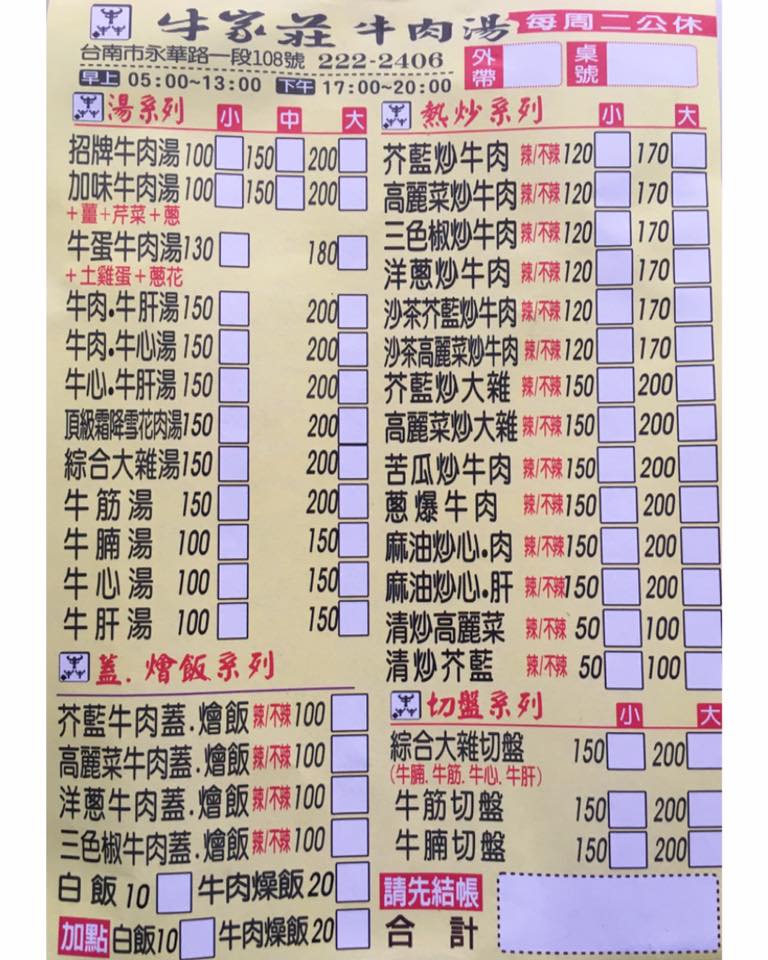 牛家莊 牛肉湯 每周二公休
台南市永華路一段108號 222-2406
早上 05:00~13:00 下午 17:00~20:00
外帶
桌號
湯系列 小 中 大
招牌牛肉湯 100 150 200
加味牛肉湯 100 150 200
+薑+芹菜+蔥
牛蛋牛肉湯 130 180
+土雞蛋+蔥花
牛肉.牛肝湯 150 200
牛肉.牛心湯 150 200
牛心.牛肝湯 150 200
頂級霜降雪花肉湯 150 200
綜合大雜湯 150 200
牛筋湯 150 200
牛腩湯 100 150
牛心湯 100 150
牛肝湯 100 150
蓋.燴飯系列
芥藍牛肉蓋.燴飯 辣/不辣 100
高麗菜牛肉蓋.燴飯 辣/不辣 100
洋蔥牛肉蓋.燴飯 辣/不辣 100
三色椒牛肉蓋.燴飯 辣/不辣 100
白飯 10 牛肉燥飯 20
加點 白飯 10 牛肉燥飯 20
熱炒系列 小 大
芥藍炒牛肉 辣/不辣 120 170
高麗菜炒牛肉 辣/不辣 120 170
三色椒炒牛肉 辣/不辣 120 170
洋蔥炒牛肉 辣/不辣 120 170
沙茶芥藍炒牛肉 辣/不辣 120 170
沙茶高麗菜炒牛肉 辣/不辣 120 170
芥藍炒大雜 辣/不辣 150 200
高麗菜炒大雜 辣/不辣 150 200
苦瓜炒牛肉 辣/不辣 150 200
蔥爆牛肉 辣/不辣 150 200
麻油炒心.肉 辣/不辣 150 200
麻油炒心.肝 辣/不辣 150 200
清炒高麗菜 辣/不辣 50 100
清炒芥藍 辣/不辣 50 100
切盤系列 小 大
綜合大雜切盤 150 200
(牛腩.牛筋.牛心.牛肝)
牛筋切盤 150 200
牛腩切盤 150 200
請先結帳
合計